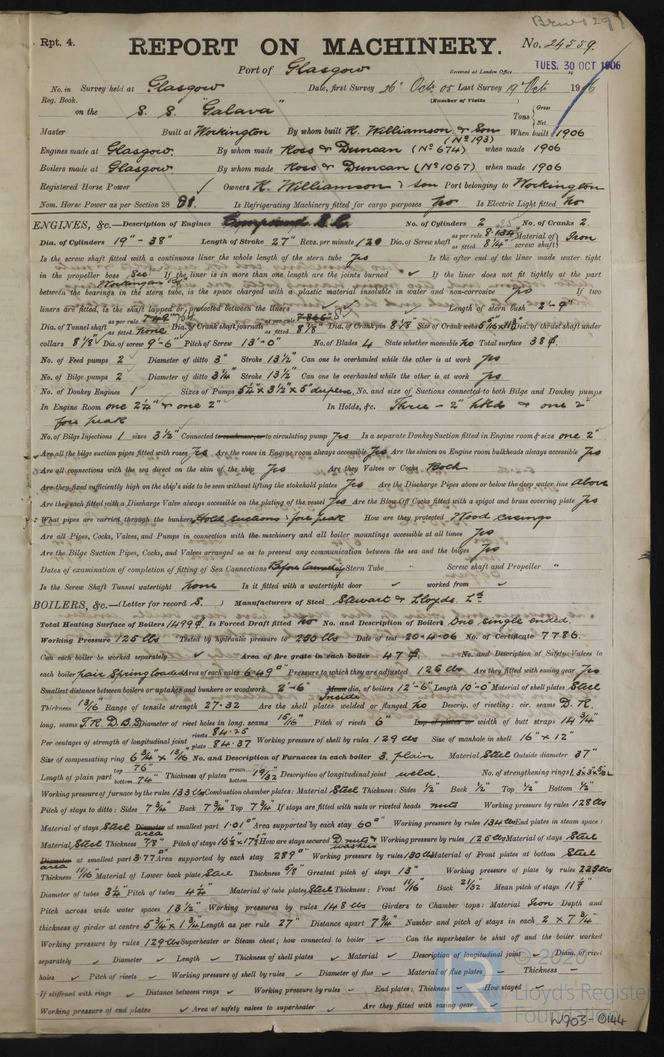 Rpt. 4.
REPORT ON MACHINERY.
No. 24559.
Port of Glasgow
Received at London Office
TUES. 30 OCT 1906
No. in Survey held at Glasgow Date, first Survey 26th Oct. 05 Last Survey 19th Oct 1906
Reg. Book.
(Number of Visits)
on the S. S. "Galava"
Tons Gross Net
Master Built at Workington By whom built R. Williamson & Son (No 193) When built 1906
Engines made at Glasgow By whom made Ross & Duncan (No 674) when made 1906
Boilers made at Glasgow By whom made Ross & Duncan (No 1067) when made 1906
Registered Horse Power Owners R. Williamson & Son Port belonging to Workington
Nom. Horse Power as per Section 28 Is Refrigerating Machinery fitted for cargo purposes no Is Electric Light fitted no
ENGINES, &c.—Description of Engines Compound No. of Cylinders 2 No. of Cranks 2
Dia. of Cylinders 19" - 38" Length of Stroke 27" Revs. per minute 120 Dia. of Screw shaft as per rule as fitted 8¼" Material of screw shaft Iron
Is the screw shaft fitted with a continuous liner the whole length of the stern tube Yes Is the after end of the liner made water tight
in the propeller boss Yes If the liner is in more than one length are the joints burned If the liner does not fit tightly at the part
between the bearings in the stern tube, is the space charged with a plastic material insoluble in water and non-corrosive Yes If two
liners are fitted, is the shaft lapped or protected between the liners Length of stern bush 2'-9"
Dia. of Tunnel shaft as per rule as fitted none Dia. of Crank shaft journals as per rule as fitted 8⅛" Dia. of Crank pin 8⅛ Size of Crank webs Dia. of thrust shaft under
collars 8⅛" Dia. of screw 9'-6" Pitch of Screw 13'-0" No. of Blades 4 State whether moveable no Total surface 38
No. of Feed pumps 2 Diameter of ditto 3" Stroke 13½" Can one be overhauled while the other is at work Yes
No. of Bilge pumps 2 Diameter of ditto 3¼" Stroke 13½" Can one be overhauled while the other is at work Yes
No. of Donkey Engines 1 Sizes of Pumps 5¼" x 3½" x 5" duplex No. and size of Suctions connected to both Bilge and Donkey pumps
In Engine Room one 2¼" & one 2" In Holds, &c. Three - 2" holds & one 2"
fore peak
No. of Bilge Injections 1 sizes 3½" Connected to circulating pump Yes Is a separate Donkey Suction fitted in Engine room & size one 2"
Are all the bilge suction pipes fitted with roses Yes Are the roses in Engine room always accessible Yes Are the sluices on Engine room bulkheads always accessible Yes
Are all connections with the sea direct on the skin of the ship Yes Are they Valves or Cocks Both
Are they fixed sufficiently high on the ship's side to be seen without lifting the stokehold plates Yes Are the Discharge Pipes above or below the deep water line above
Are they each fitted with a Discharge Valve always accessible on the plating of the vessel Yes Are the Blow Off Cocks fitted with a spigot and brass covering plate Yes
What pipes are carried through the bunkers Hold suctions & fore peak How are they protected Wood casings
Are all Pipes, Cocks, Valves, and Pumps in connection with the machinery and all boiler mountings accessible at all times Yes
Are the Bilge Suction Pipes, Cocks, and Valves arranged so as to prevent any communication between the sea and the bilges Yes
Dates of examination of completion of fitting of Sea Connections Before launching Stern Tube " Screw shaft and Propeller "
Is the Screw Shaft Tunnel watertight none Is it fitted with a watertight door worked from
BOILERS, &c.—(Letter for record S.) Manufacturers of Steel Stewart & Lloyds. Ld
Total Heating Surface of Boilers 1499 Is Forced Draft fitted no No. and Description of Boilers One single ended.
Working Pressure 125 lbs Tested by hydraulic pressure to 250 lbs Date of test 20-4-06 No. of Certificate 7786.
Can each boiler be worked separately Area of fire grate in each boiler 47 No. and Description of Safety Valves to
each boiler pair Spring loaded Area of each valve 6.49" Pressure to which they are adjusted 126 lbs Are they fitted with easing gear Yes
Smallest distance between boilers or uptakes and bunkers or woodwork 2'-6 Inside dia. of boilers 12'-6" Length 10'-0" Material of shell plates Steel
Thickness 13/16" Range of tensile strength 27-32 Are the shell plates welded or flanged no Descrip. of riveting: cir. seams D. R.
long. seams T. R. D. B. S Diameter of rivet holes in long. seams 15/16" Pitch of rivets 6" width of butt straps 14¾"
Per centages of strength of longitudinal joint rivets 84.25 plate 84.37 Working pressure of shell by rules 129 lbs Size of manhole in shell 16" x 12"
Size of compensating ring 6¾" x 13/16 No. and Description of Furnaces in each boiler 3, plain Material Steel Outside diameter 37"
Length of plain part top 76" bottom 74" Thickness of plates crown bottom 19/32 Description of longitudinal joint weld. No. of strengthening rings
Working pressure of furnace by the rules 133 lbs Combustion chamber plates: Material Steel Thickness: Sides ½" Back ½" Top ½" Bottom ½"
Pitch of stays to ditto: Sides 7¾" Back 7¾" Top 7¾" If stays are fitted with nuts or riveted heads nuts Working pressure by rules 128 lbs
Material of stays Steel area at smallest part 1.01" Area supported by each stay 60" Working pressure by rules 134 lbs End plates in steam space:
Material Steel Thickness 7/8" Pitch of stays 16½" x 17½" How are stays secured D. nuts & washers Working pressure by rules 125 lbs Material of stays Steel
area at smallest part 3.77 Area supported by each stay 289" Working pressure by rules 130 lbs Material of Front plates at bottom Steel
Thickness 11/16" Material of Lower back plate Steel Thickness 5/8" Greatest pitch of stays 13" Working pressure of plate by rules 229 lbs
Diameter of tubes 3¼" Pitch of tubes 4¼" Material of tube plates Steel Thickness: Front 11/16" Back 21/32 Mean pitch of stays 11
Pitch across wide water spaces 13½" Working pressures by rules 148 lbs Girders to Chamber tops: Material Iron Depth and
thickness of girder at centre 5¾" x 1¾" Length as per rule 27" Distance apart 7¾" Number and pitch of stays in each 2 x 7¾"
Working pressure by rules 129 lbs Superheater or Steam chest; how connected to boiler Can the superheater be shut off and the boiler worked
separately Diameter Length Thickness of shell plates Material Description of longitudinal joint Diam. of rivet
holes Pitch of rivets Working pressure of shell by rules Diameter of flue Material of flue plates Thickness
If stiffened with rings Distance between rings Working pressure by rules End plates: Thickness How stayed
Working pressure of end plates Area of safety valves to superheater Are they fitted with easing gear
© 2020
Lloyd's Register
Foundation
W703-0144